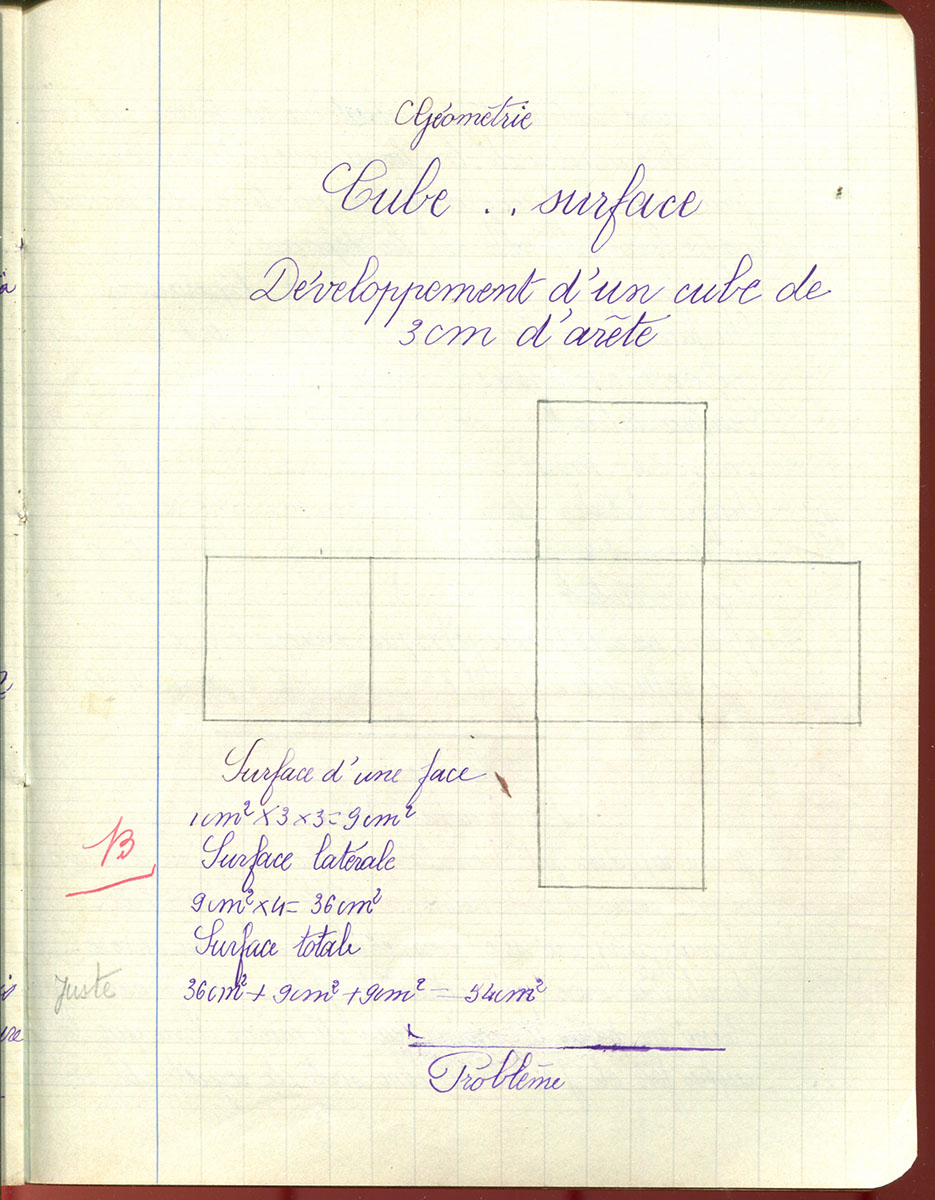 Géométrie
Cube .. surface
Développement d'un cube de
3cm d'arête
Surface d'une face
1cm² × 3 × 3 = 9cm²
B
Surface latérale
9cm² × 4 = 36cm²
Surface totale
Juste
36cm² + 9cm² + 9cm² = 54cm²
Problème